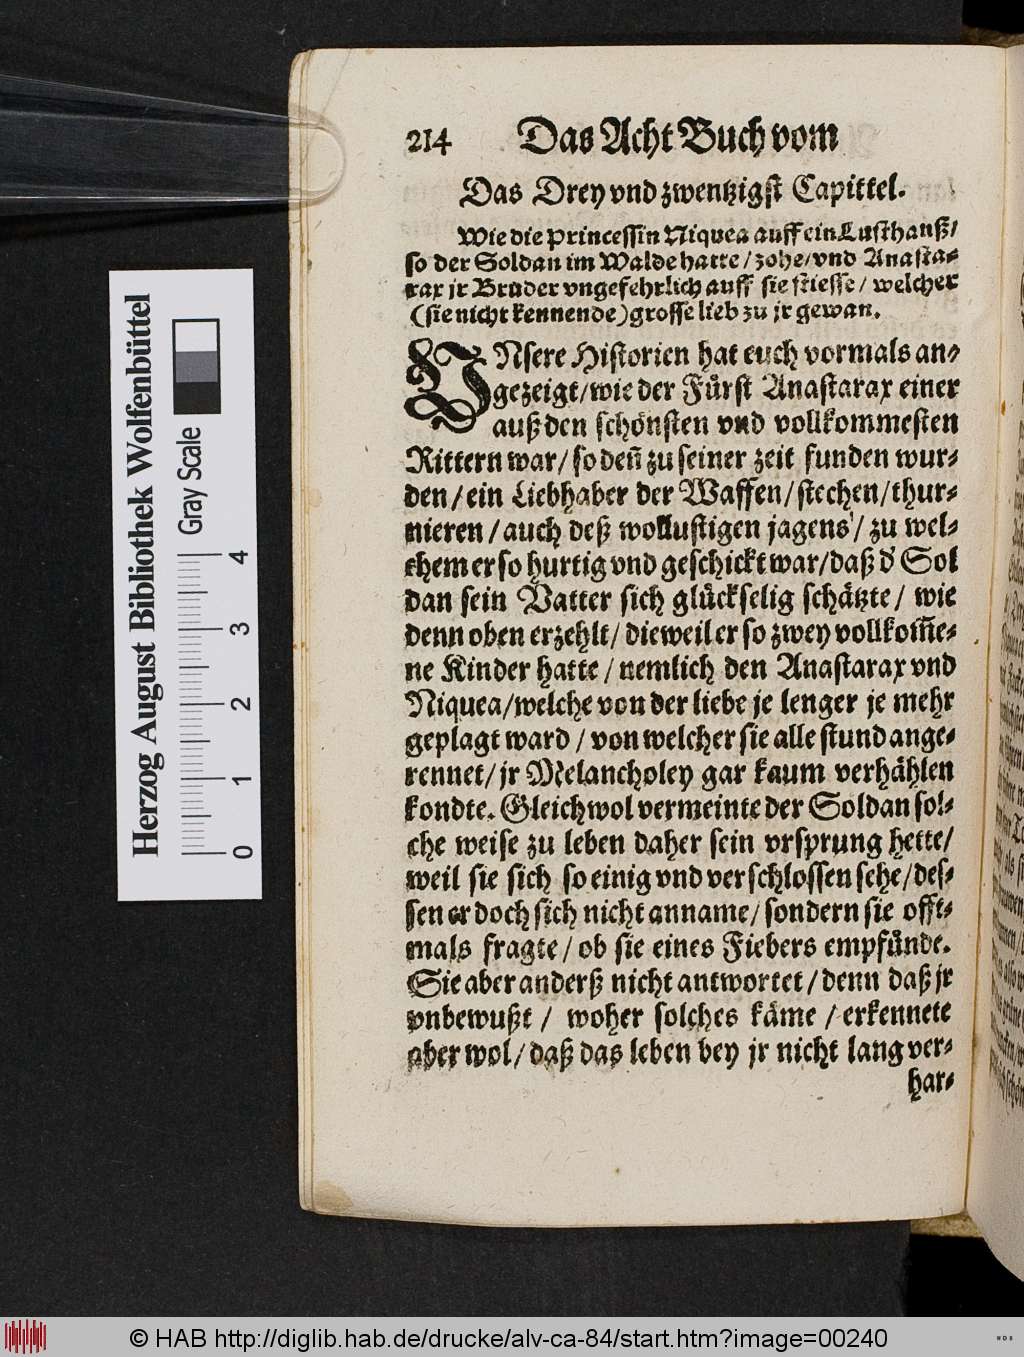 214 Das Acht Buch vom
Das Drey vnd zwentzigst Capittel.
Wie die Princessin Niquea auff ein Lusthauß/
so der Soldan im Walde hatte/zohe/vnd Anasta-
rax jr Bruder vngefehrlich auff sie stiesse/ welcher
(sie nicht kennende) grosse lieb zu jr gewan.
VNsere Historien hat euch vormals an-
gezeigt/wie der Fürst Anastarax einer
auß den schönsten vnd vollkommesten
Rittern war/ so deñ zu seiner zeit funden wur-
den/ein Liebhaber der Waffen/stechen/thur-
nieren/auch deß wollustigen jagens/ zu wel-
chem er so hurtig vnd geschickt war/daß d' Sol
dan sein Vatter sich glückselig schätzte/ wie
denn oben erzehlt/dieweil er so zwey vollkom̃e-
ne Kinder hatte/ nemlich den Anastarax vnd
Niquea/welche von der liebe je lenger je mehr
geplagt ward/ von welcher sie alle stund ange-
rennet/jr Melancholey gar kaum verhählen
kondte. Gleichwol vermeinte der Soldan sol-
che weise zu leben daher sein vrsprung hette/
weil sie sich so einig vnd verschlossen sehe/des-
sen er doch sich nicht anname/sondern sie offt-
mals fragte/ob sie eines Fiebers empfünde.
Sie aber anderß nicht antwortet/denn daß jr
vnbewußt/ woher solches käme/erkennete
aber wol/daß das leben bey jr nicht lang ver-
har-
Herzog August Bibliothek Wolfenbüttel
Gray Scale
0 1 2 3 4
© HAB http://diglib.hab.de/drucke/alv-ca-84/start.htm?image=00240